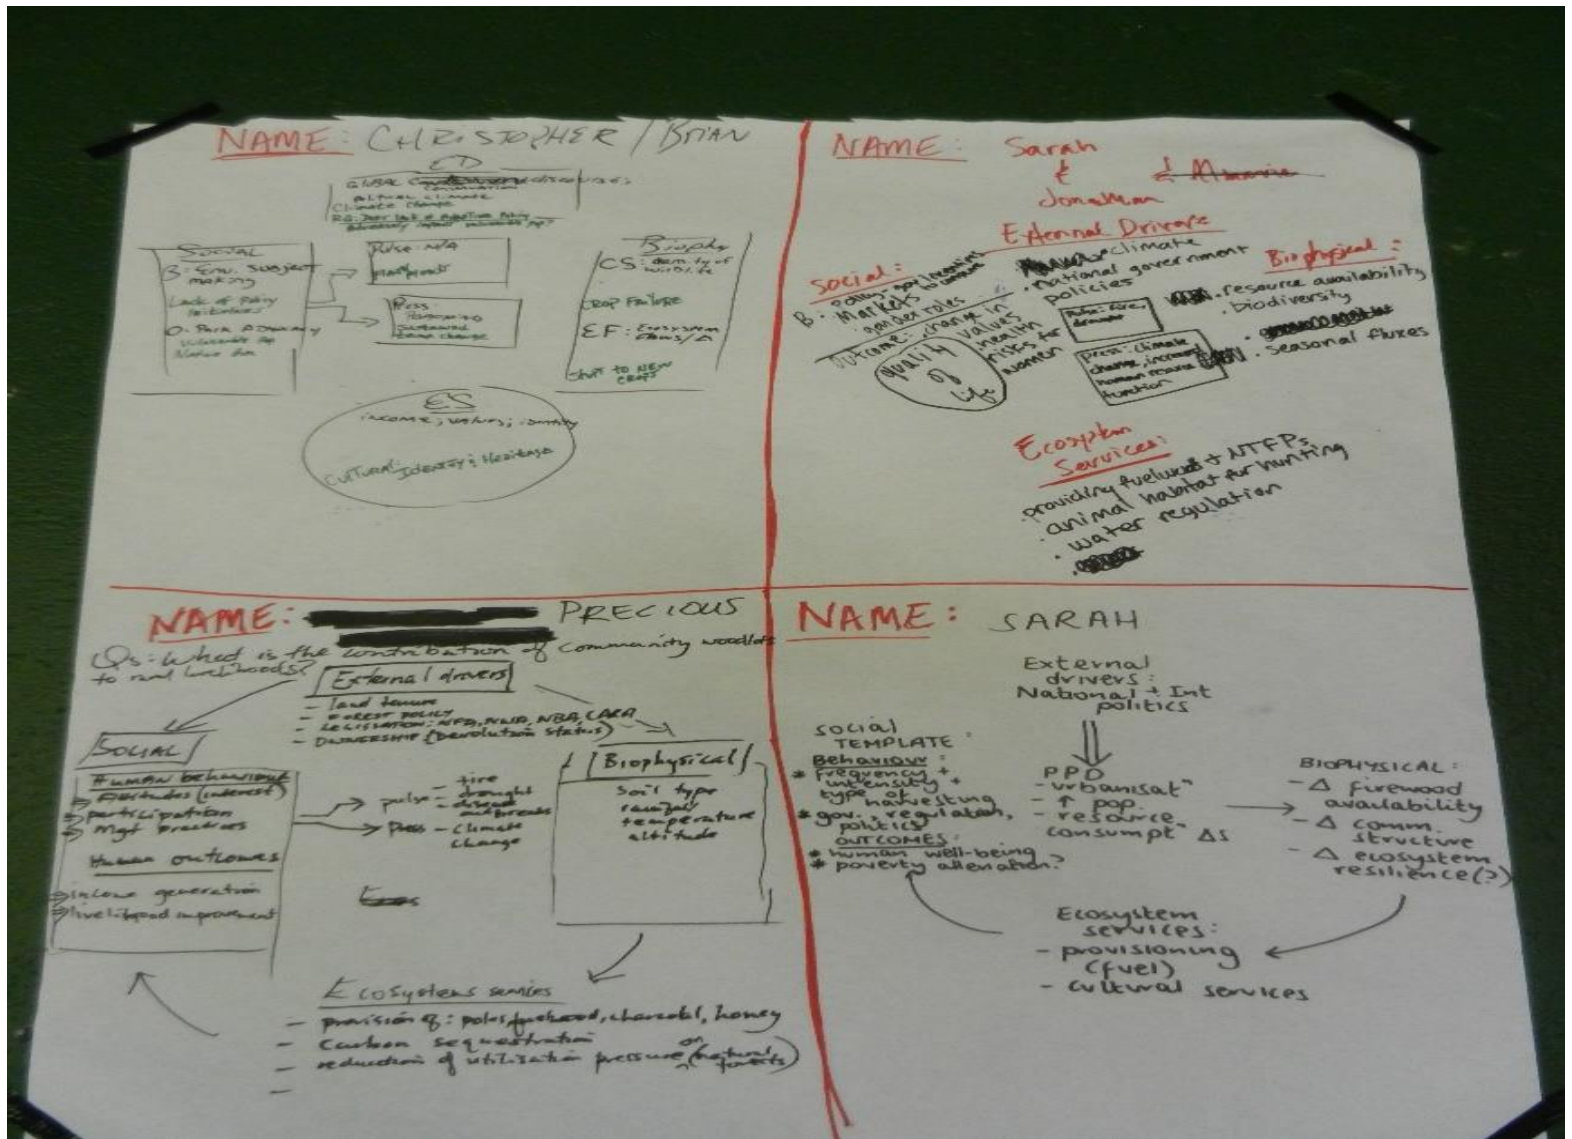 NAME: CHRISTOPHER / BRIAN
ED
GLOBAL discourses
climate
Climate change
RQ: Does lack of adaptive policy
adversely impact vulnerable pop?
SOCIAL
B: Env. subject
making
Lack of Policy
initiatives
O:
Vulnerable pop
Pulse: N/A
Press:
Sustained
temp change
Biophy
CS: density of
wildlife
CROP FAILURE
EF: Ecosystem
flows/Δ
Shift to NEW
CROPS
ES
income; values; identity
CULTURAL:
IDENTITY; Heritage
NAME: Sarah
&
Jonathan
External Drivers
climate
national government
policies
Social:
B:
Markets
gender roles
Outcome: change in
values
health
risks for
women
quality
of
life
pulse: fire,
drought
press: climate
change, increased
human resource
function
Biophysical:
resource availability
biodiversity
seasonal fluxes
Ecosystem
Services:
providing fuelwood + NTFPs
animal habitat for hunting
water regulation
NAME: PRECIOUS
Qs: What is the contribution of community woodlots
to rural livelihoods?
External drivers
- land tenure
- FOREST POLICY
- LEGISLATION: NFA, NWA, NBA, CARA
- OWNERSHIP (Devolution status)
SOCIAL
Human behaviour
Attitudes (interest)
participation
Mgt practices
Human outcomes
income generation
livelihood improvement
pulse - fire
- drought
- disease
outbreaks
press - climate
change
Biophysical
Soil type
rainfall
temperature
altitude
Ecosystems services
- provision of: poles, fuelwood, charcoal, honey
- Carbon sequestration
- reduction of utilisation pressure on (natural
forests)
-
NAME: SARAH
External
drivers:
National + Int
politics
SOCIAL
TEMPLATE:
Behaviour:
* frequency +
intensity +
type of
harvesting
* gov., regulation,
politics
OUTCOMES
* human well-being
* poverty alleviation?
PPD
- urbanisatⁿ
- ↑ pop.
- resource
consumptⁿ Δs
BIOPHYSICAL:
- Δ firewood
availability
- Δ comm.
structure
- Δ ecosystem
resilience(?)
Ecosystem
services:
- provisioning
(fuel)
- cultural services